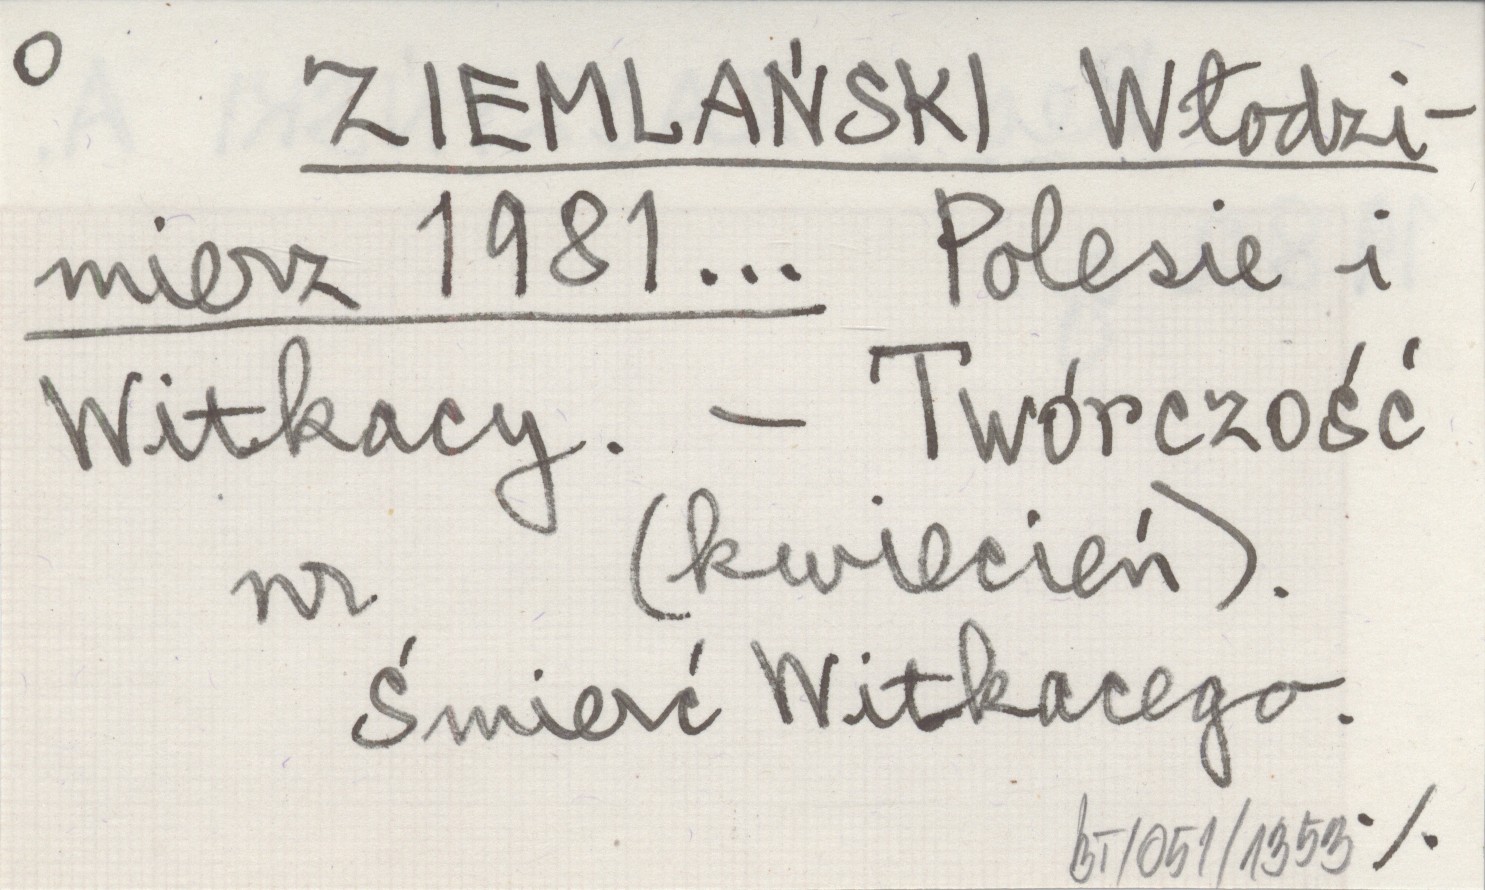 O ZIEMLAŃSKI Włodzi-
mierz 1981... Polesie i
Witkacy. – Twórczość
nr (kwiecień).
Śmierć Witkacego.
BT/051/1353 ·/.